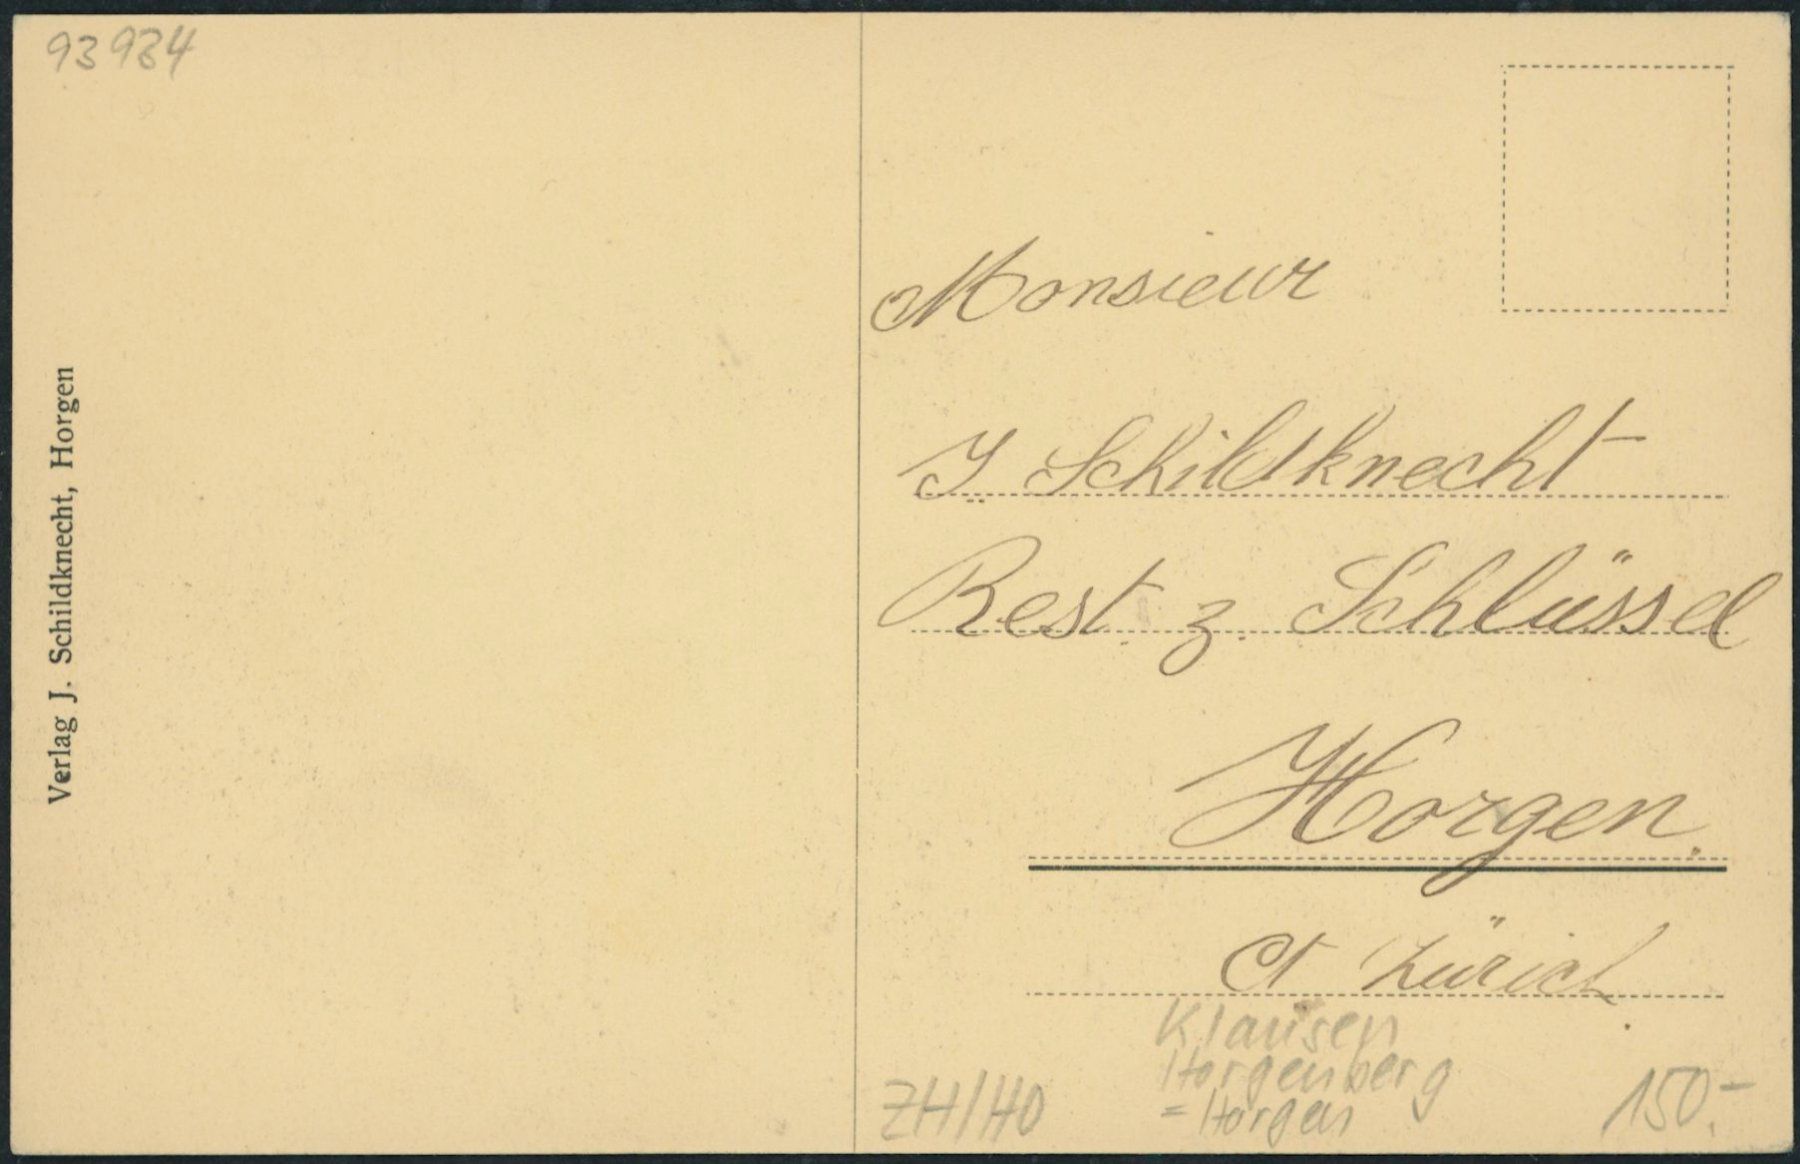 93934
Verlag J. Schildknecht, Horgen
Monsieur
J. Schildknecht
Rest. z. Schlüssel
Horgen.
Ct Zürich.
Klausen
Horgenberg
= Horgen
ZH/HO
150.-